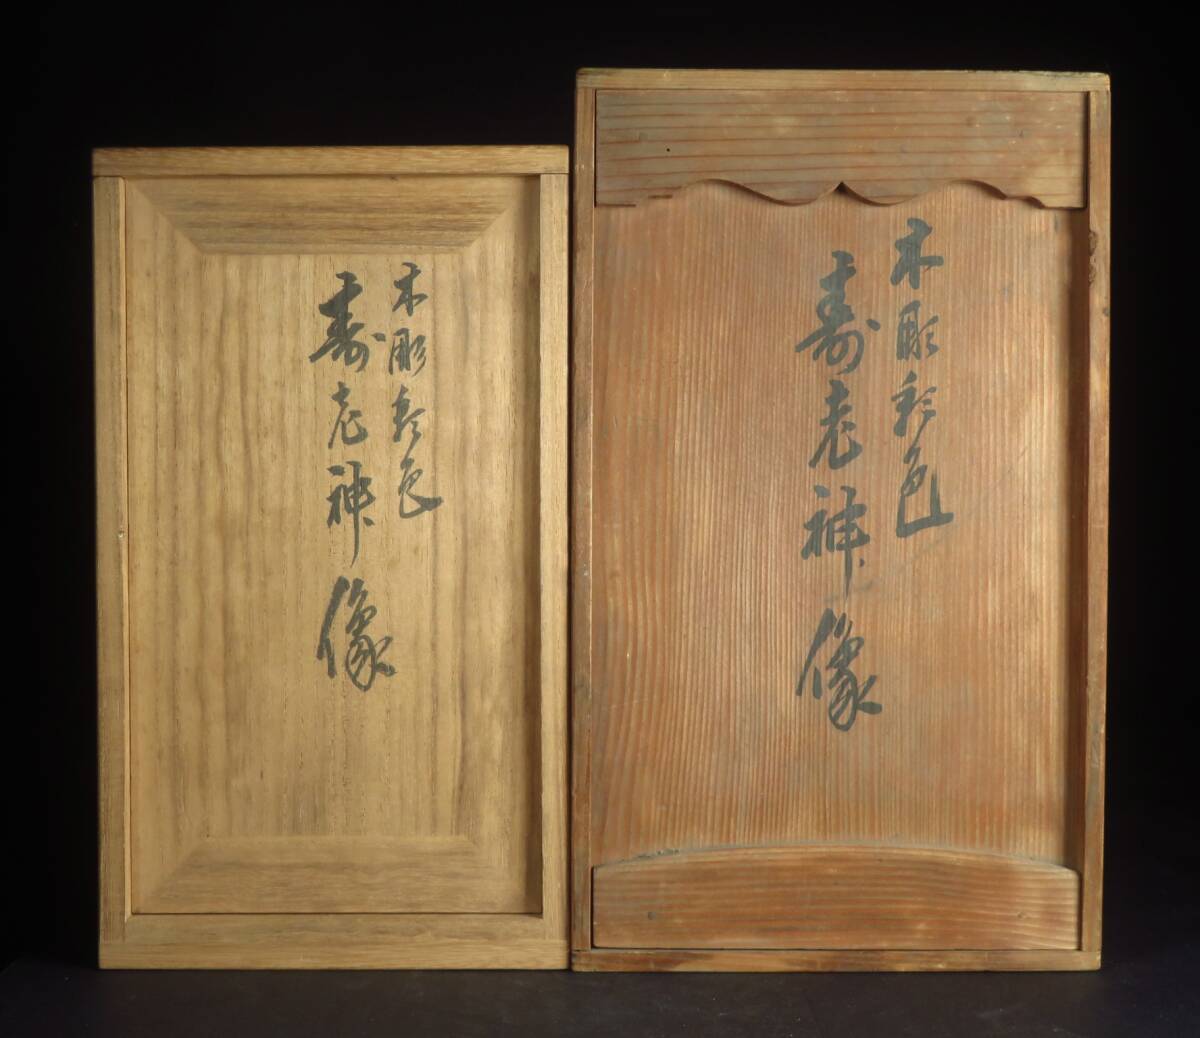 木彫彩色
寿老神像
木彫彩色
寿老神像